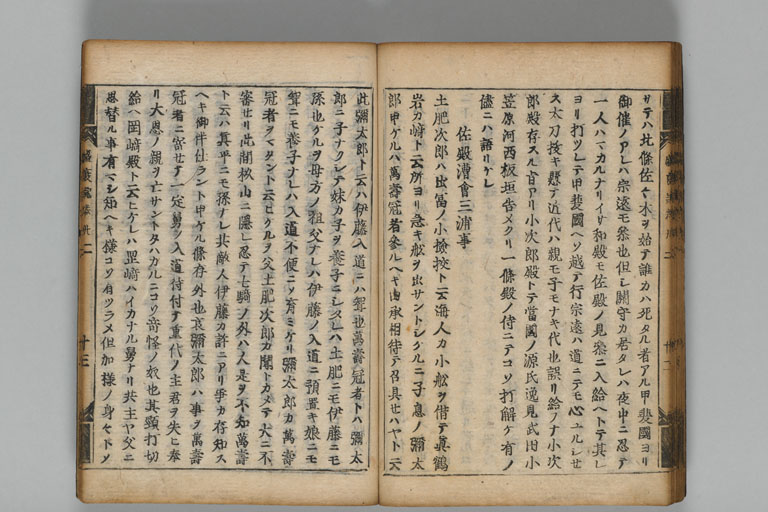 サテハ北條佐々木ヲ始テ誰カハ死タル者アル甲斐國ヨリ
御催ノアレハ宗遠モ参也但シ關守カ君タレハ夜中ニ忍テ
一人ハマカルナリイサ和殿モ佐殿ノ見参ニ入給ヘトテ其レ
ヨリ打ツレテ甲斐國ヘソ越テ行宗遠ハ道ニテモ心ユルシセ
ス太刀技キ懸テ近代ハ親モ子モナキ代也誤リ給フナ小次
郎殿存スル旨アリ小次郎殿トテ當國ノ源氏逸見武田小
笠原河西板垣告メクリ一條殿ノ侍ニテコソ打解ケ有ノ
儘ニハ語リケレ
佐殿漕會三浦事
土肥次郎ハ出冨ノ小撿挍ト云海人カ小舩ヲ借テ真鶴
岩カ﨑ト云所ヨリ急キ舩ヲ出サントシケルニ子息ノ彌太
郎申ケルハ萬壽冠者参ルヘキ由承相待テ召具セハヤト云
此彌太郎ト云ハ伊藤入道ニハ聟也萬壽冠者トハ彌太
郎ニ子ナクシテ妹カ子ヲ養子ニシタレハ土肥ニモ伊藤ニモ
孫也ケルヲ母方ノ祖父ナレハ伊藤ノ入道ニ預置キ娘ニモ
聟ニモ養子ナレハ入道不便ニソ育ミケリ彌太郎カ萬壽
冠者ヲマタント云ヒケルヲ父土肥次郎カ聞トカメテ大ニ不
審セリ此間杦山ニ隱レ忍テ七騎ノ外ハ人是ヲ不知萬壽
ト云ハ真平ニモ孫ナレ共敵人伊藤カ許ニアリ爭カ存知ス
ヘキ御伴仕ラント申ケル條存外也哀彌太郎ハ事ヲ萬壽
冠者ニ寄セテ一定舅ノ入道待付テ重代ノ主君ヲ失ヒ奉
リ大恩ノ親ヲ亡サントタハカルニコソ竒怪ノ奴也其頸打切
給ヘ岡﨑殿ト云ヒケレハ罡﨑ハイカナル舅ナリ共主ヤ父ニ
思替ル事有マシ知ヘキ様コソ有ツラメ但加様ノ身セトソ
十三